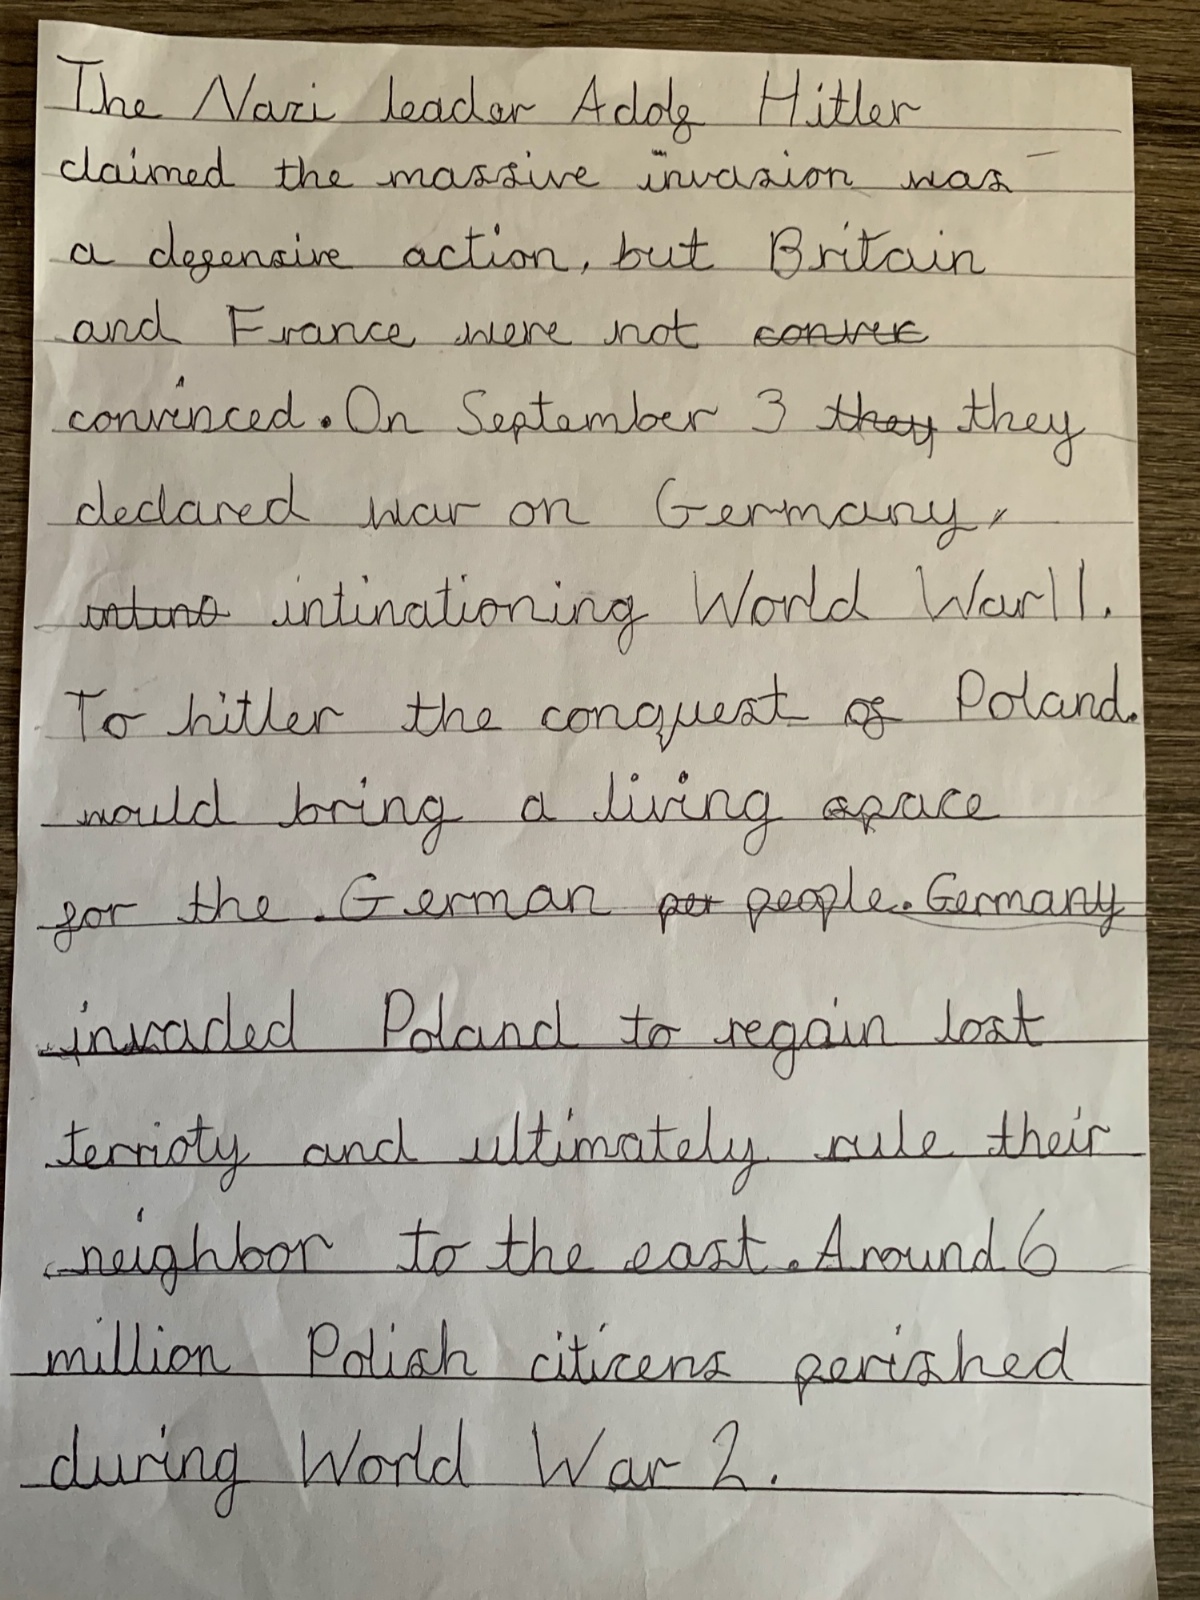 The Nazi leader Adolf Hitler
claimed the massive invasion was
a defensive action, but Britain
and France were not convec
convinced. On September 3 they they
declared war on Germany,
intino intinationing World War II.
To hitler the conquest of Poland.
would bring a living space
for the German per people. Germany
invaded Poland to regain lost
terrioty and ultimately rule their
neighbor to the east. Around 6
million Polish citizens perished
during World War 2.